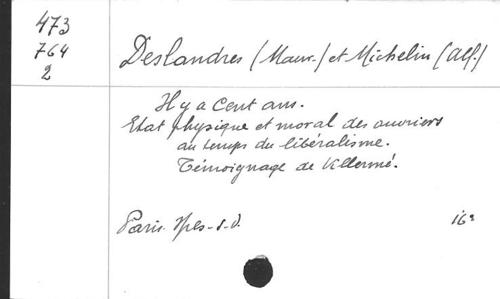 473
764
2
Deslandres (Maur.) et Michelin (Alf.)
Il y a cent ans.
Etat physique et moral des ouvriers
au temps du libéralisme.
Témoignage de Villermé.
Paris. Spes - s.d. 16°